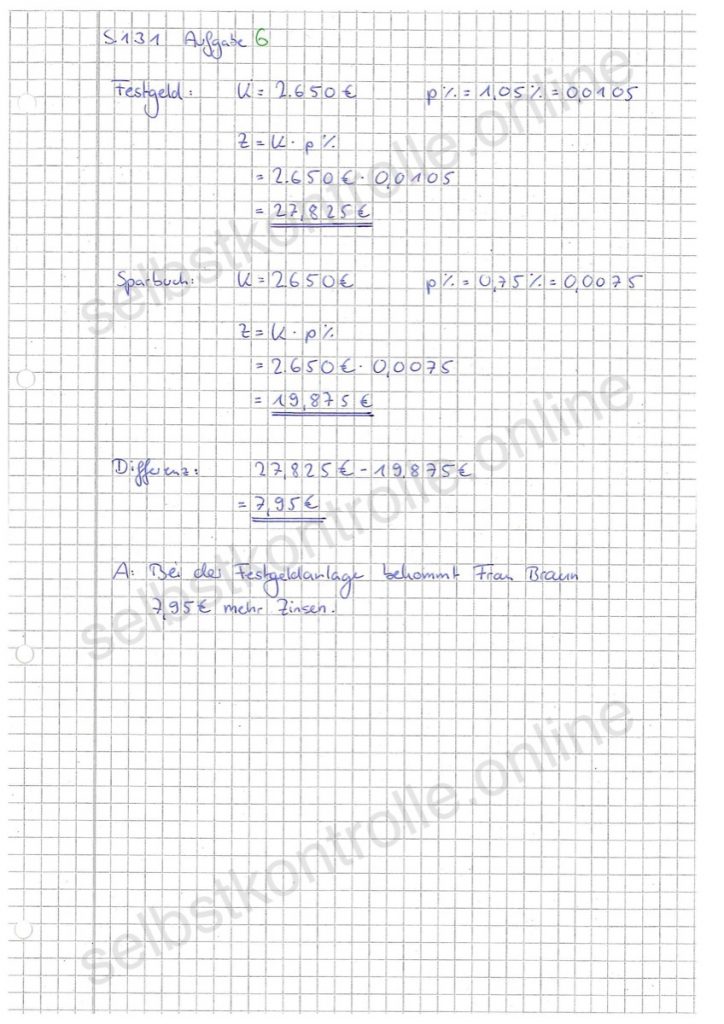 S.131 Aufgabe 6
Festgeld: K = 2.650 € p% = 1,05% = 0,0105
Z = K · p%
= 2.650 € · 0,0105
= 27,825 €
Sparbuch: K = 2650 € p% = 0,75% = 0,0075
Z = K · p%
= 2.650 € · 0,0075
= 19,875 €
Differenz: 27,825 € - 19,875 €
= 7,95 €
A: Bei der Festgeldanlage bekommt Frau Braun
7,95 € mehr Zinsen.
selbstkontrolle.online
selbstkontrolle.online
selbstkontrolle.online